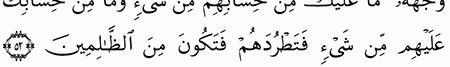 وَجْهَهُۥ مَا عَلَيْكَ مِنْ حِسَابِهِم مِّن شَىْءٍ وَمَا مِنْ حِسَابِكَ
عَلَيْهِم مِّن شَىْءٍ فَتَطْرُدَهُمْ فَتَكُونَ مِنَ ٱلظَّٰلِمِينَ ٥٢